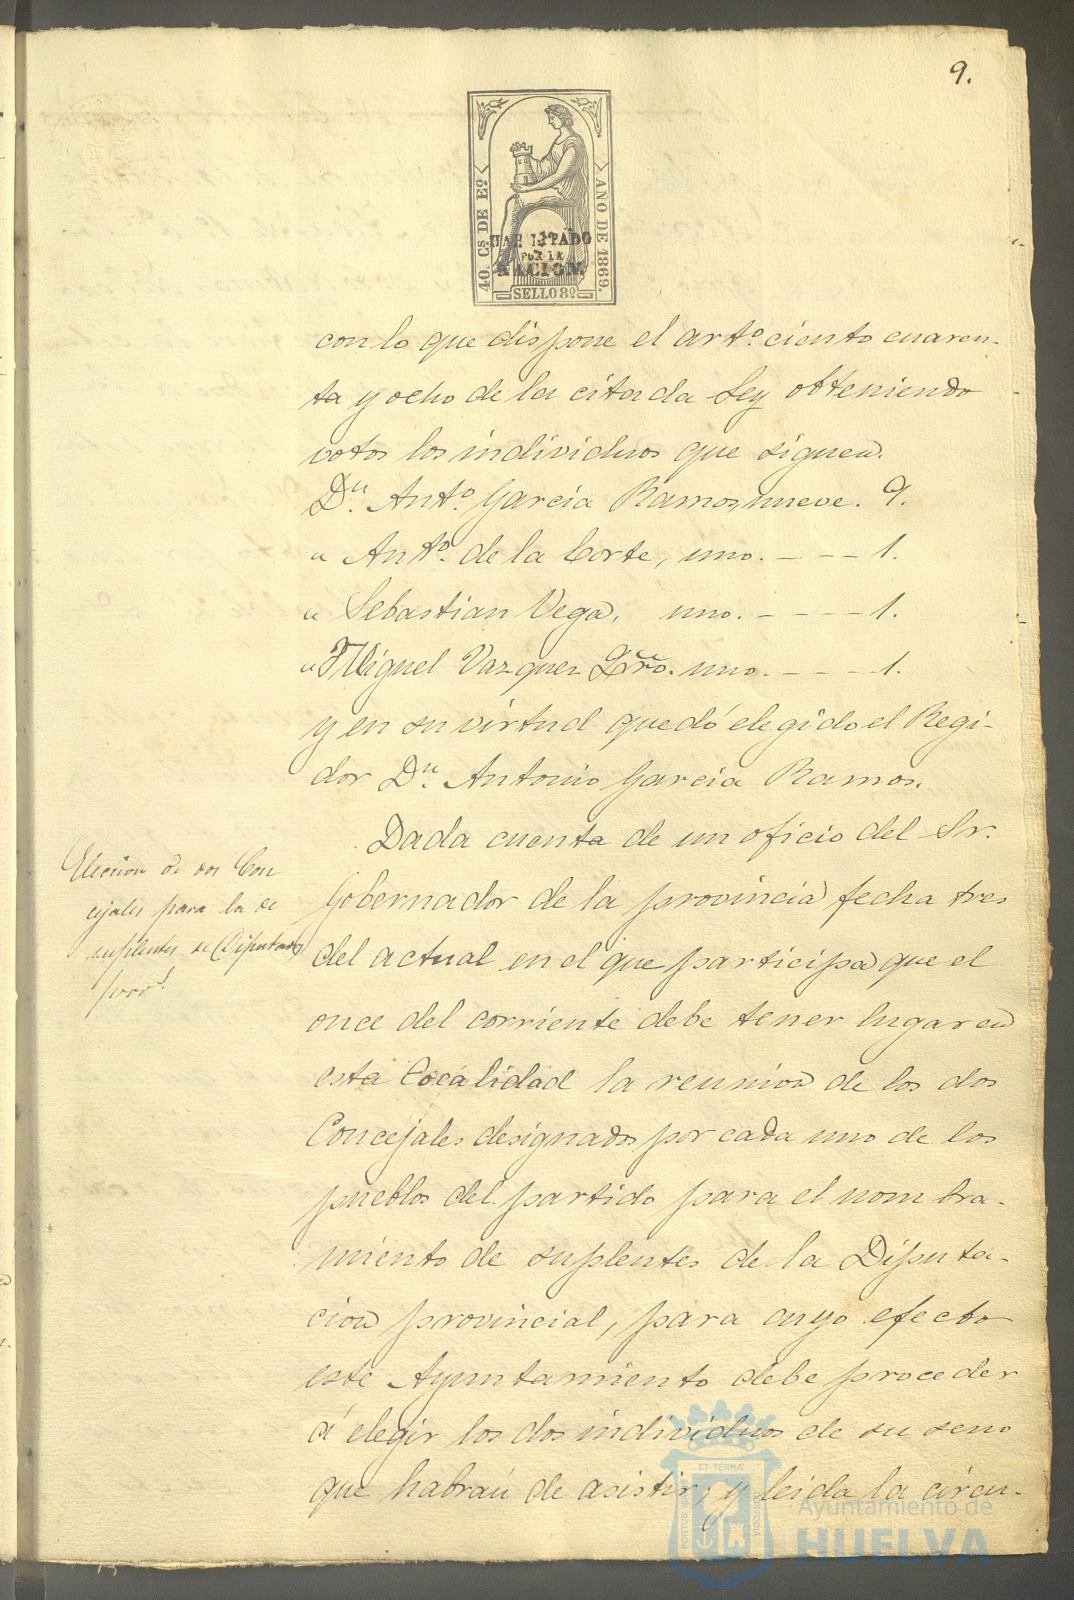 9.
40. Cs. DE Eº
AÑO DE 1869.
HABILITADO
POR LA
NACION
SELLO 8º
con lo que dispone el artº. ciento cuaren-
ta y ocho de la citada Ley obteniendo
votos los individuos que siguen.
Dn. Antº. Garcia Ramos, nueve. 9.
" Antº. de la Corte, uno. - - - 1.
" Sebastian Vega, uno. - - - - 1.
" Miguel Vazquez uno. - - - - 1.
y en su virtud quedó elegido el Regi-
dor Dn. Antonio Garcia Ramos.
Dada cuenta de un oficio del Sr.
Eleccion de dos Con
cejales para la de
suplentes de Diputados
provl.
Gobernador de la provincia fecha tres
del actual en el que participa que el
once del corriente debe tener lugar en
esta localidad la reunion de los dos
Concejales designados por cada uno de los
pueblos del partido para el nombra-
miento de suplentes de la Diputa-
cion provincial, para cuyo efecto
este Ayuntamiento debe proceder
á elegir los dos individuos de su seno
que habrán de asistir; y leida la circu-
Ayuntamiento de
HUELVA